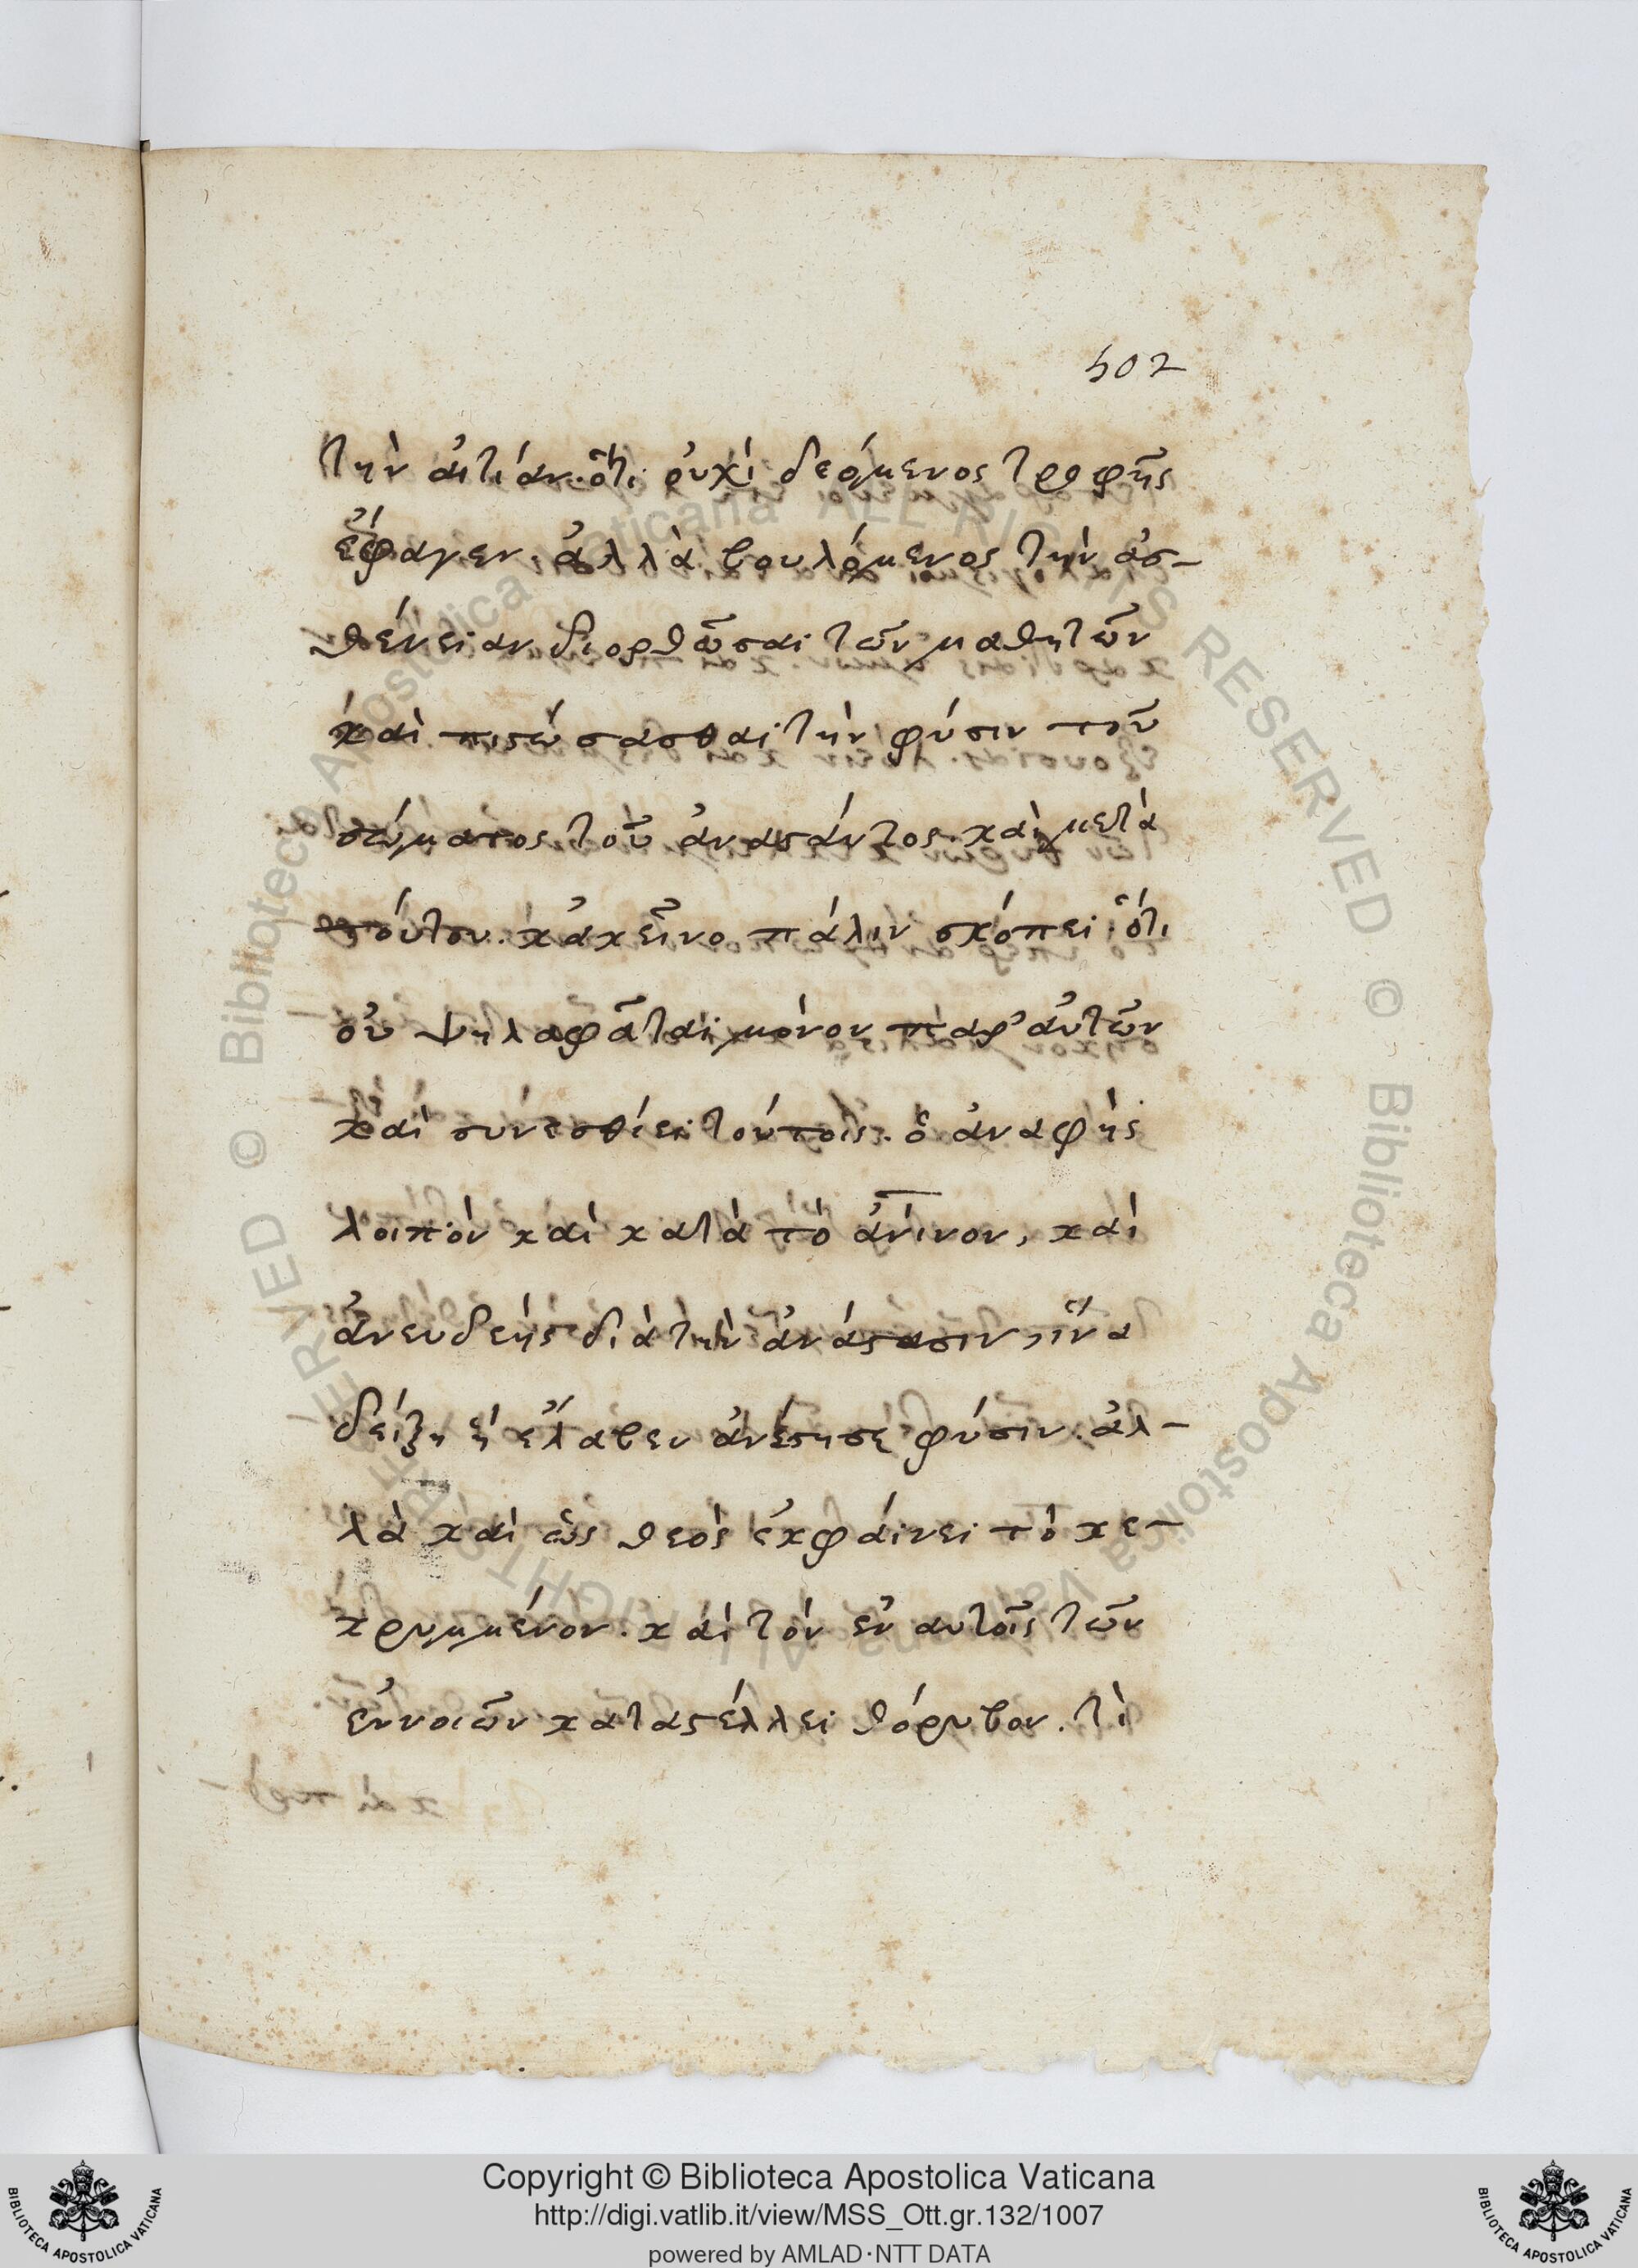 502
τὴν αἰτίαν. ὅτι οὐχὶ δεόμενος τροφῆς
ἔφαγεν. ἀλλὰ βουλόμενος τὴν ἀσ-
θένειαν διορθῶσαι τῶν μαθητῶν
καὶ πιϛώσασθαι τὴν φύσιν τοῦ
σώματος τοῦ ἀναϛάντος. καὶ μετὰ
τούτου. κἀκεῖνο πάλιν σκόπει ὅτι
οὐ ψηλαφᾶται μόνον παρ' αὐτῶν
καὶ συνεσθίει τούτοις. ὁ ἀναφὴς
λοιπὸν καὶ κατὰ τὸ ἀνινον, καὶ
ἀνευδεὴς διὰ τὴν ἀνάϛασιν, ἵνα
δείξῃ ἣ ἔλαβεν ἀνέϛησε φύσιν. ἀλ-
λὰ καὶ ὡς θεὸς ἐκφαίνει τὸ κε-
κρυμμένον. καὶ τὸν ἐν αυτοῖς τῶν
ἐννοιῶν καταϛέλλει θόρυβον. τὶ
© Biblioteca Apostolica Vaticana ALL RIGHTS RESERVED © Biblioteca Apostolica Vaticana ALL RIGHTS RESERVED
Copyright © Biblioteca Apostolica Vaticana
http://digi.vatlib.it/view/MSS_Ott.gr.132/1007
powered by AMLAD·NTT DATA
BIBLIOTECA APOSTOLICA VATICANA
BIBLIOTECA APOSTOLICA VATICANA